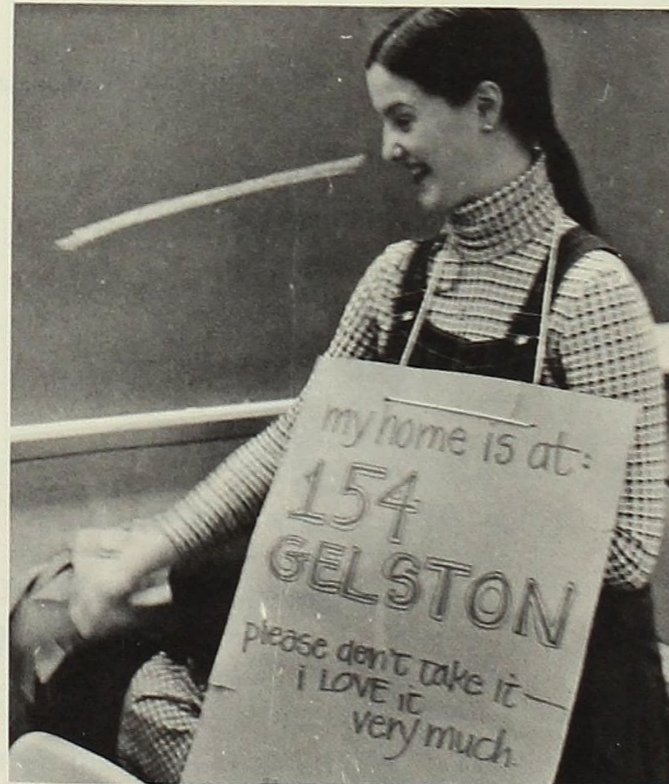 my home is at:
154
GELSTON
please don't take it —
i LOVE it
very much.